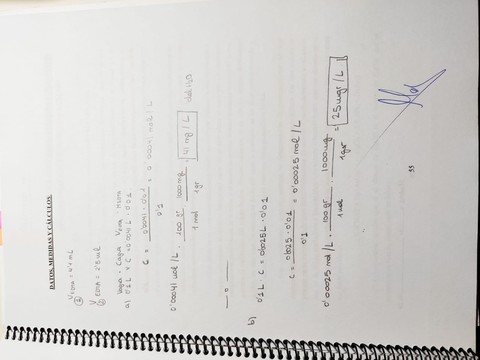 DATOS, MEDIDAS Y CÁLCULOS
① V EDTA = 4'1 mL
② V EDTA = 2'5 mL
Vagua · Cagua = VEDTA · MEDTA
a) 0'1 L × C = 0'0041 L · 0'01
C = 0'0041 · 0'01 / 0'1 = 0'00041 mol / L
0'00041 mol / L · 100 gr / 1 mol · 1000 mg / 1 gr = 41 mg / L
b) 0'1 L C = 0'0025 L · 0'01
C = 0'0025 · 0'01 / 0'1 = 0'00025 mol / L
0'00025 mol / L · 100 gr / 1 mol · 1000 mg / 1 gr = 25 mgr / L
55